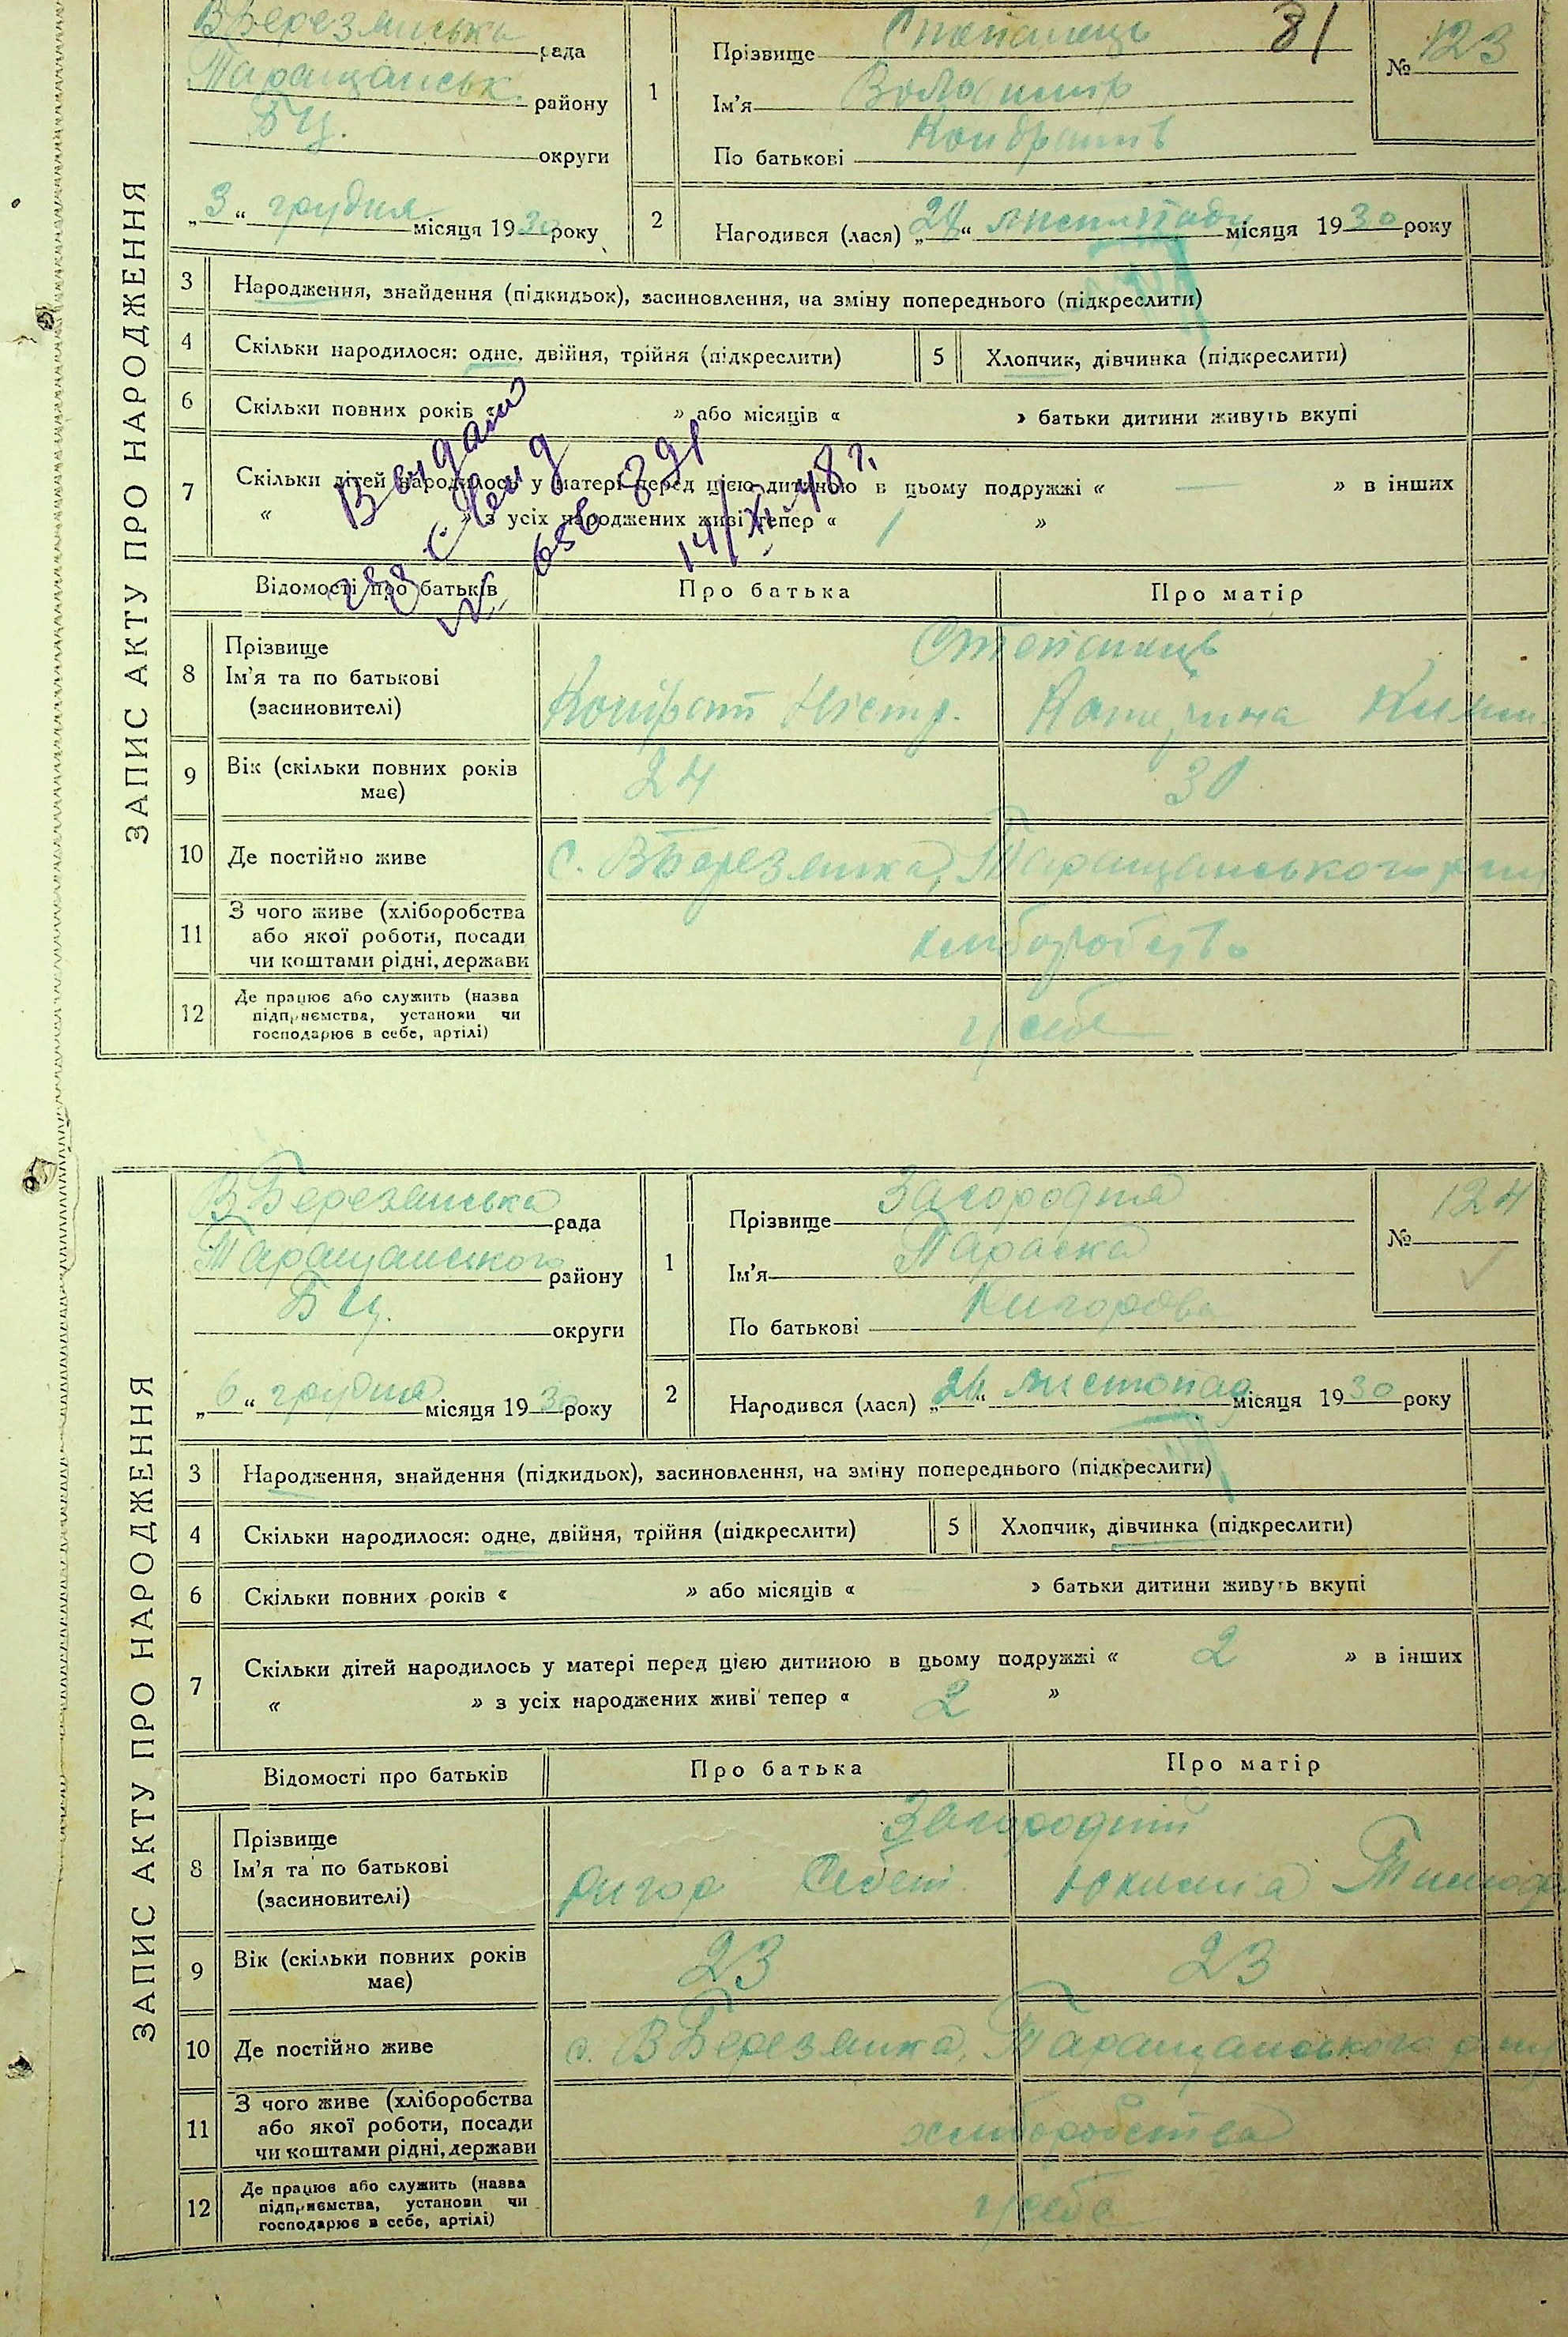 ЗАПИС АКТУ ПРО НАРОДЖЕННЯ
ВБерезанська рада
Таращанськ. району
БЦ. округи
„3“ грудня місяця 1930 року
1 Прізвище Степанець 81
Ім'я Володимир
По батькові Кондратів
№ 123
2 Народився (лася) „28“ листопаду місяця 1930 року
3 Народження, знайдення (підкидьок), засиновлення, на зміну попереднього (підкреслити)
4 Скільки народилося: одне, двійня, трійня (підкреслити) 5 Хлопчик, дівчинка (підкреслити)
6 Скільки повних років « » або місяців « » батьки дитини живуть вкупі
7 Скільки дітей народилось у матері перед цією дитиною в цьому подружжі « — » в інших
« » з усіх народжених живі тепер « 1 »
14/XI-48 г.
Відомості про батьків Про батька Про матір
8 Прізвище
Ім'я та по батькові
(засиновителі)
Степанець
Кондрат Катерина
9 Вік (скільки повних років
має) 24 30
10 Де постійно живе с. ВБерезянка, Таращанського
11 З чого живе (хліборобства
або якої роботи, посади
чи коштами рідні, держави
хліборобство
12 Де працює або служить (назва
підприємства, установи чи
господарює в себе, артілі)
у себе
ЗАПИС АКТУ ПРО НАРОДЖЕННЯ
ВБерезанська рада
Таращанського району
БЦ. округи
„6“ грудня місяця 1930 року
1 Прізвище Загородня
Ім'я Параска
По батькові
№ 124
2 Народився (лася) „26“ листопад місяця 1930 року
3 Народження, знайдення (підкидьок), засиновлення, на зміну попереднього (підкреслити)
4 Скільки народилося: одне, двійня, трійня (підкреслити) 5 Хлопчик, дівчинка (підкреслити)
6 Скільки повних років « » або місяців « » батьки дитини живуть вкупі
7 Скільки дітей народилось у матері перед цією дитиною в цьому подружжі « 2 » в інших
« » з усіх народжених живі тепер « 2 »
Відомості про батьків Про батька Про матір
8 Прізвище
Ім'я та по батькові
(засиновителі)
Загородній
9 Вік (скільки повних років
має) 23 23
10 Де постійно живе с. ВБерезянка, Таращанського
11 З чого живе (хліборобства
або якої роботи, посади
чи коштами рідні, держави
хліборобства
12 Де працює або служить (назва
підприємства, установи чи
господарює в себе, артілі)
у себе